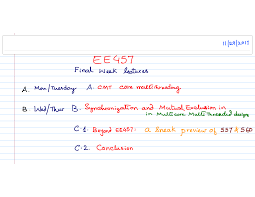 11/28/2017
EE457
Final Week lectures
A. Mon/Tuesday A. CMT Core multithreading
B. Wed/Thur B. Synchronization and Mutual Exclusion in
in Multicore Multi threaded designs
C.1. Beyond EE457: a sneak preview of 557 & 560
C.2. Conclusion